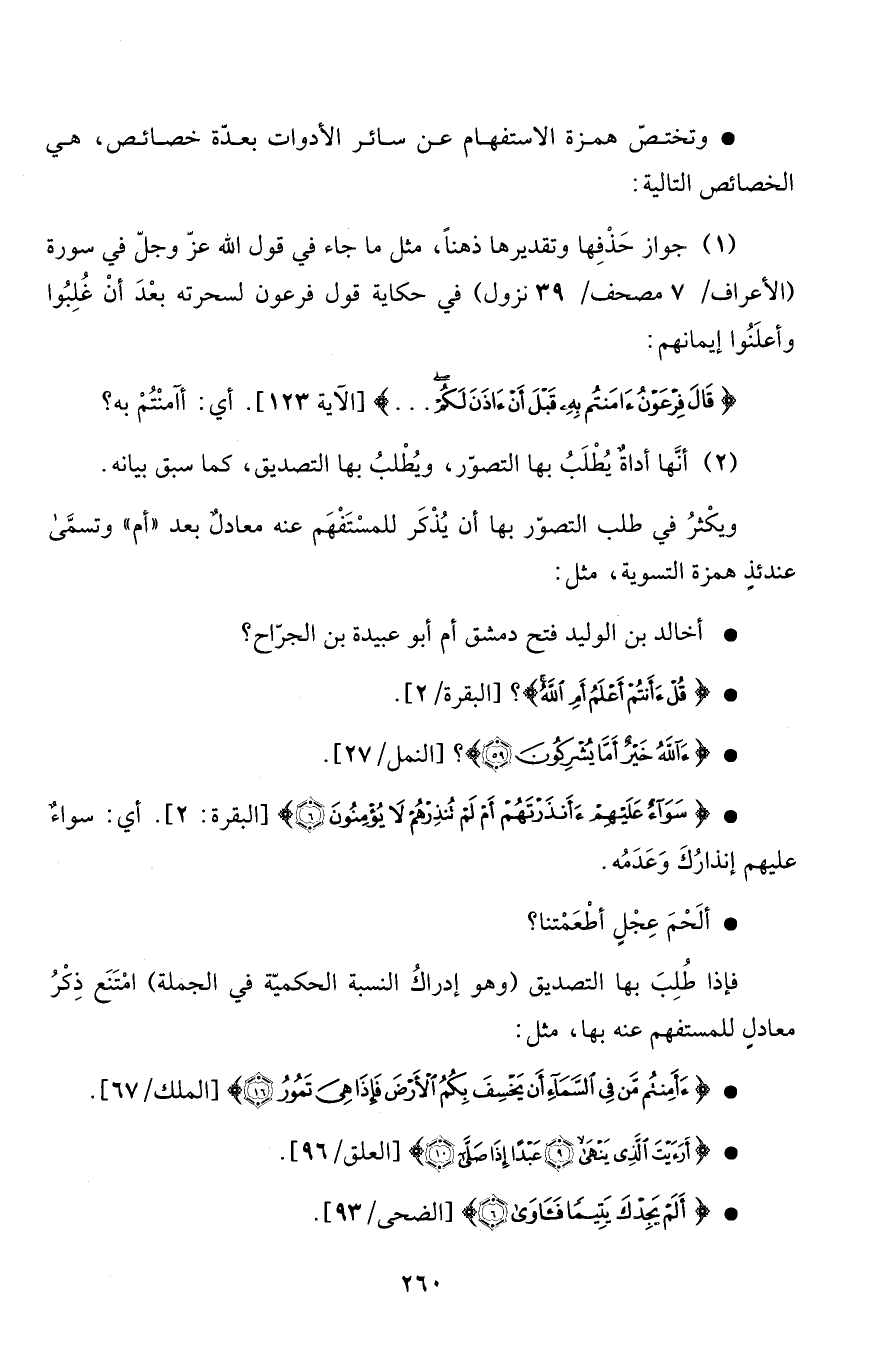 ● وتختـصّ همـزة الاستفهـام عـن سـائـر الأدوات بعـدّة خصـائـص، هـي
الخصائص التالية:
(١) جواز حَذْفِها وتقديرها ذهناً، مثل ما جاء في قول الله عزّ وجلّ في سورة
(الأعراف/ ٧ مصحف/ ٣٩ نزول) في حكاية قول فرعون لسحرته بعْدَ أنْ غُلِبُوا
وأعلَنُوا إيمانهم:
﴿ قَالَ فِرْعَوْنُ ءَامَنتُم بِهِۦ قَبْلَ أَنْ ءَاذَنَ لَكُمْۖ . . . ﴾ [الآية ١٢٣]. أي: أآمنْتُمْ به؟
(٢) أنَّها أداةٌ يُطْلَبُ بها التصوّر، ويُطْلبُ بها التصديق، كما سبق بيانه.
ويكْثرُ في طلب التصوّر بها أن يُذْكَر للمسْتَفْهَم عنه معادلٌ بعد «أم» وتسمَّىٰ
عندئذٍ همزة التسوية، مثل:
● أخالد بن الوليد فتح دمشق أم أبو عبيدة بن الجرّاح؟
● ﴿ قُلْ ءَأَنتُمْ أَعْلَمُ أَمِ ٱللَّهُۗ ﴾؟ [البقرة/ ٢].
● ﴿ ءَآللَّهُ خَيْرٌ أَمَّا يُشْرِكُونَ ٥٩ ﴾؟ [النمل/ ٢٧].
● ﴿ سَوَآءٌ عَلَيْهِمْ ءَأَنذَرْتَهُمْ أَمْ لَمْ تُنذِرْهُمْ لَا يُؤْمِنُونَ ٦ ﴾ [البقرة: ٢]. أي: سواءٌ
عليهم إنذارُكَ وَعَدَمُه.
● ألَحْمَ عِجْلٍ أطْعَمْتنا؟
فإذا طُلِبَ بها التصديق (وهو إدراكُ النسبة الحكميّة في الجملة) امْتَنَع ذِكْرُ
معادلٍ للمستفهم عنه بها، مثل:
● ﴿ ءَأَمِنتُم مَّن فِى ٱلسَّمَآءِ أَن يَخْسِفَ بِكُمُ ٱلْأَرْضَ فَإِذَا هِىَ تَمُورُ ١٦ ﴾ [الملك/ ٦٧].
● ﴿ أَرَءَيْتَ ٱلَّذِى يَنْهَىٰ ٩ عَبْدًا إِذَا صَلَّىٰٓ ١٠ ﴾ [العلق/ ٩٦].
● ﴿ أَلَمْ يَجِدْكَ يَتِيمًا فَـَٔاوَىٰ ٦ ﴾ [الضحى/ ٩٣].
٢٦٠